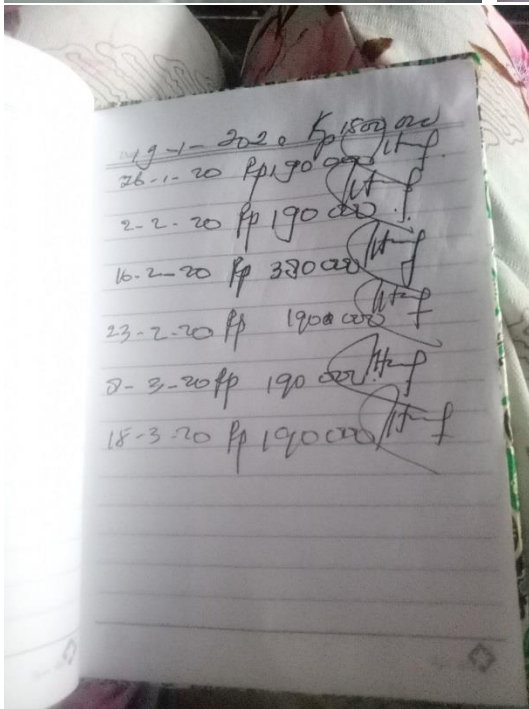 19-1-2020 Rp 1800 000
26-1-20 Rp 190 000
2-2-20 Rp 190 000
16-2-20 Rp 380 000
23-2-20 Rp 190 000
8-3-20 Rp 190 000
18-3-20 Rp 190 000